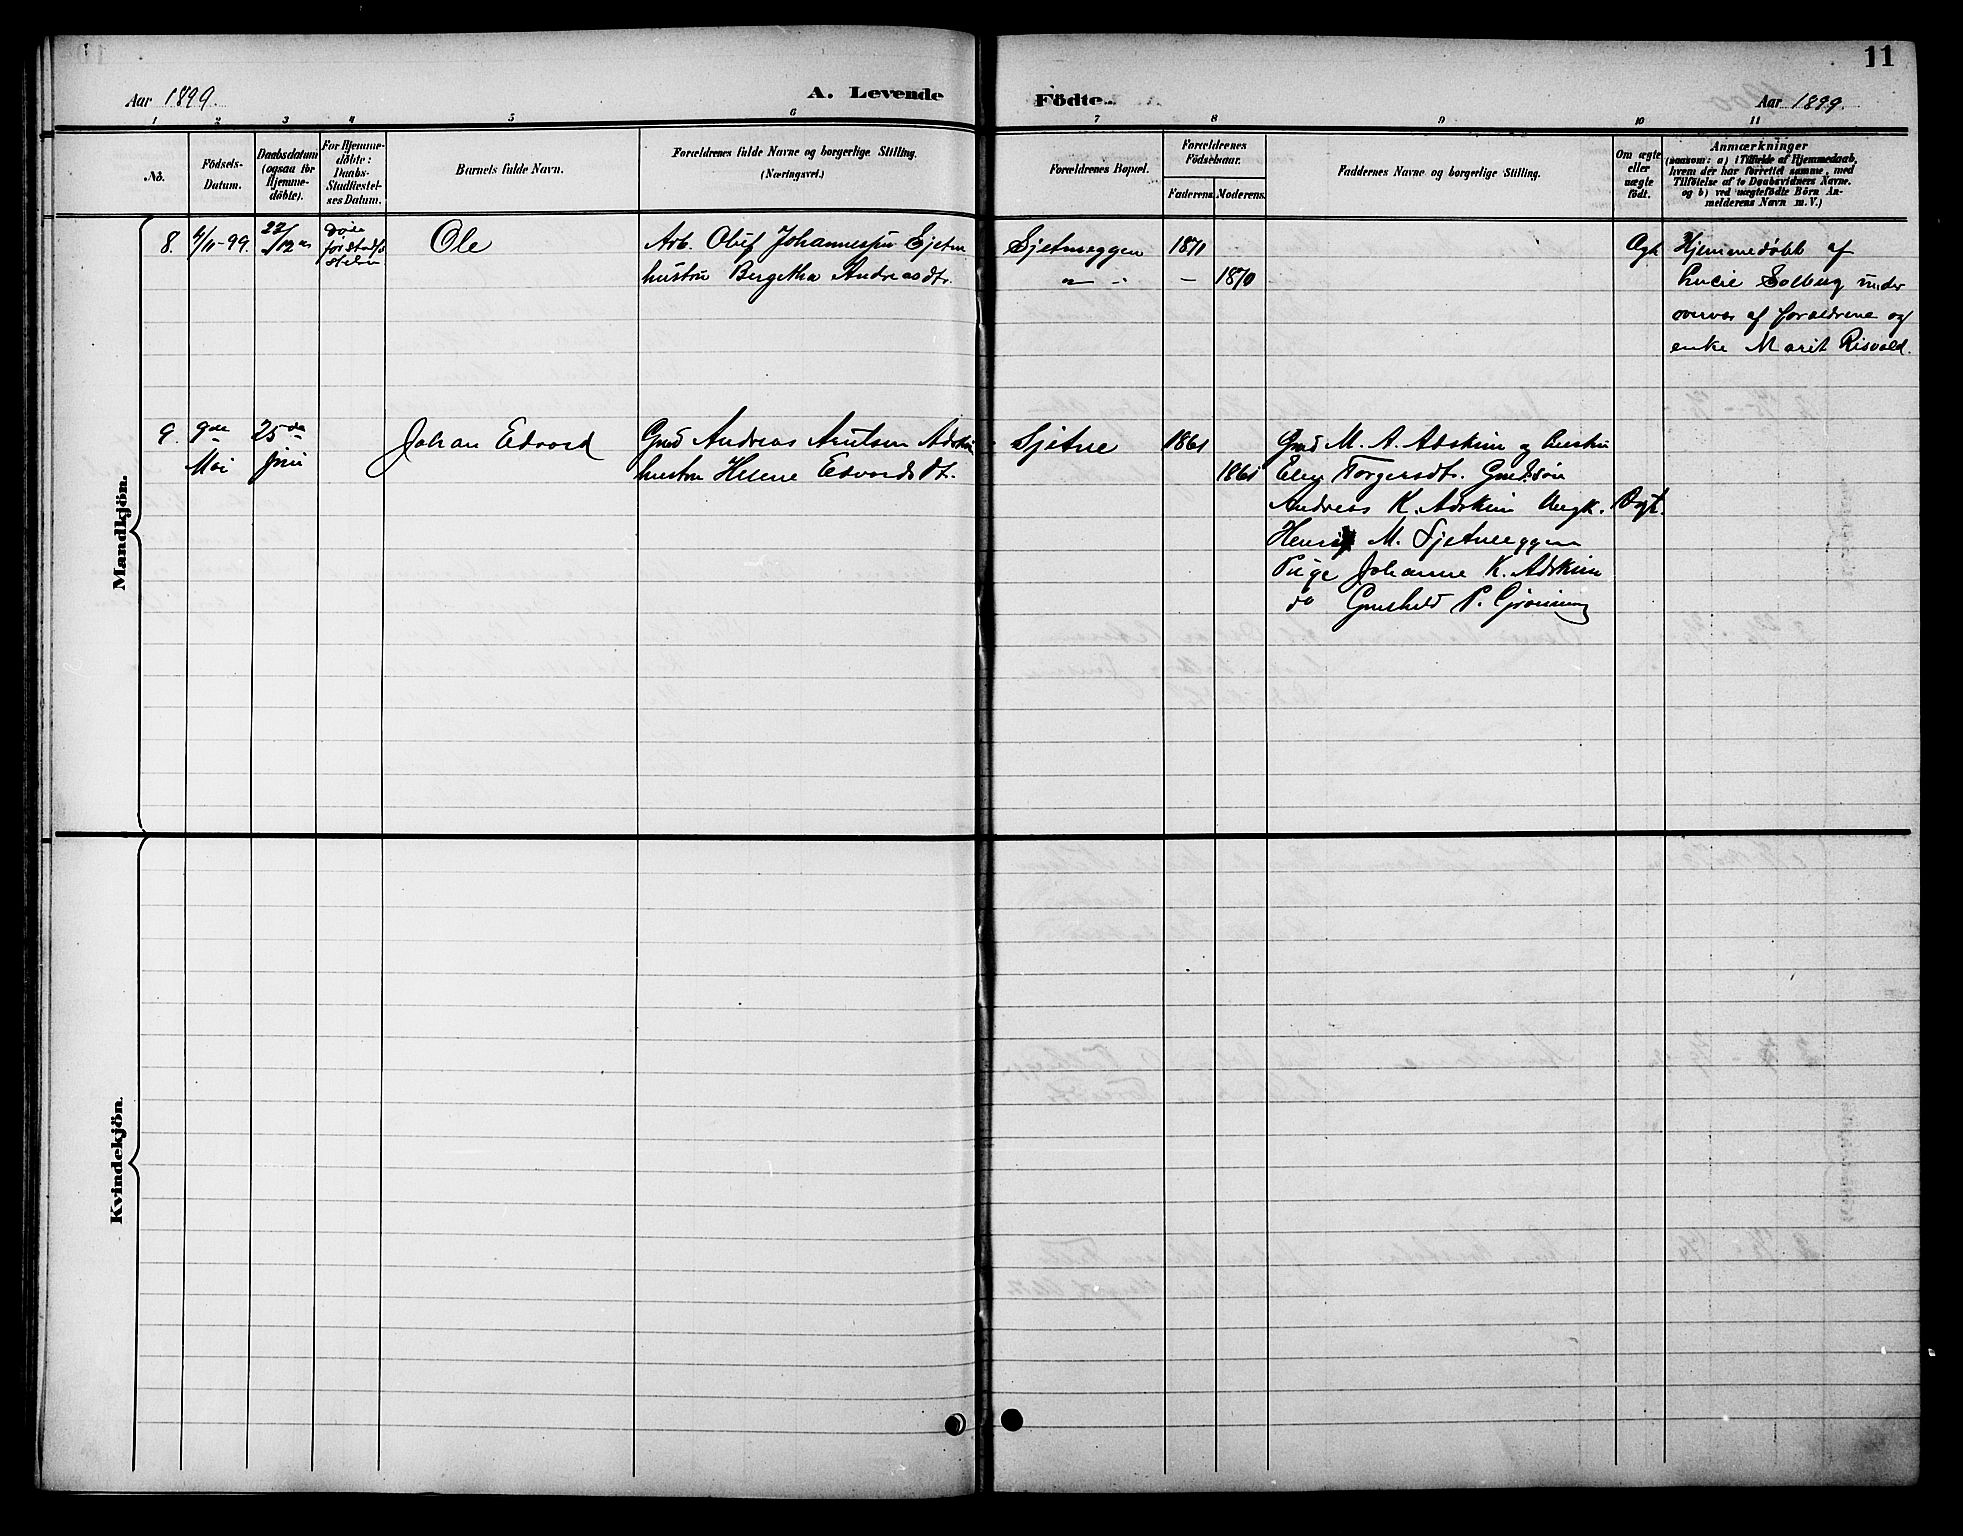 11
Aar 1899.
A. Levende
Födte.
Aar 1899.
1 2 3 4 5 6 7 8 9 10 11
No.
Födsels-
Datum.
Daabsdatum
(ogsaa for
Hjemme-
döbte).
For Hjemme-
döbte:
Daabs-
Stadfæstel-
ses Datum.
Barnets fulde Navn.
Forældrenes fulde Navne og borgerlige Stilling.
(Næringsvei.)
Forældrenes Bopæl.
Forældrenes
Födselsaar.
Faderens. Moderens.
Faddernes Navne og borgerlige Stilling.
Om ægte
eller
uægte
født.
Anmærkninger
(saasom: a) i Tilfælde af Hjemmedaab,
hvem der har forrettet samme, med
Tilföielse af to Daabsvidners Navne.
og b) ved uægtefödte Börn An-
melderens Navn m. V.)
Mandkjön.
8. 4/11-99. 22/12 Døde
før stadfæ
stelsen
Ole
Arb. Oluf Johannessen Sjetne
hustru Bergetha Andreasdtr.
Sjetneeggen 1871
— " — - 1870
Ægte
Hjemmedøbt af
Lucie Solberg under
overvær af forældrene og
enke Marit Risvold.
9. 9de
Mai
25de
Juni
Johan Edvard
Gmd Andreas Arntsen
hustru Helene Edvardsdtr.
Sjetne 1861
1861
Gmd M. A. Adskim og hustru
Elen Torgersdtr. Gmdsøn
Andreas K. Adskim Ungk.
Henrik M. Sjetneeggen
Pige Johanne K. Adskim
do Gunhild P. Grønning
Ægt.
Kvindekjön.